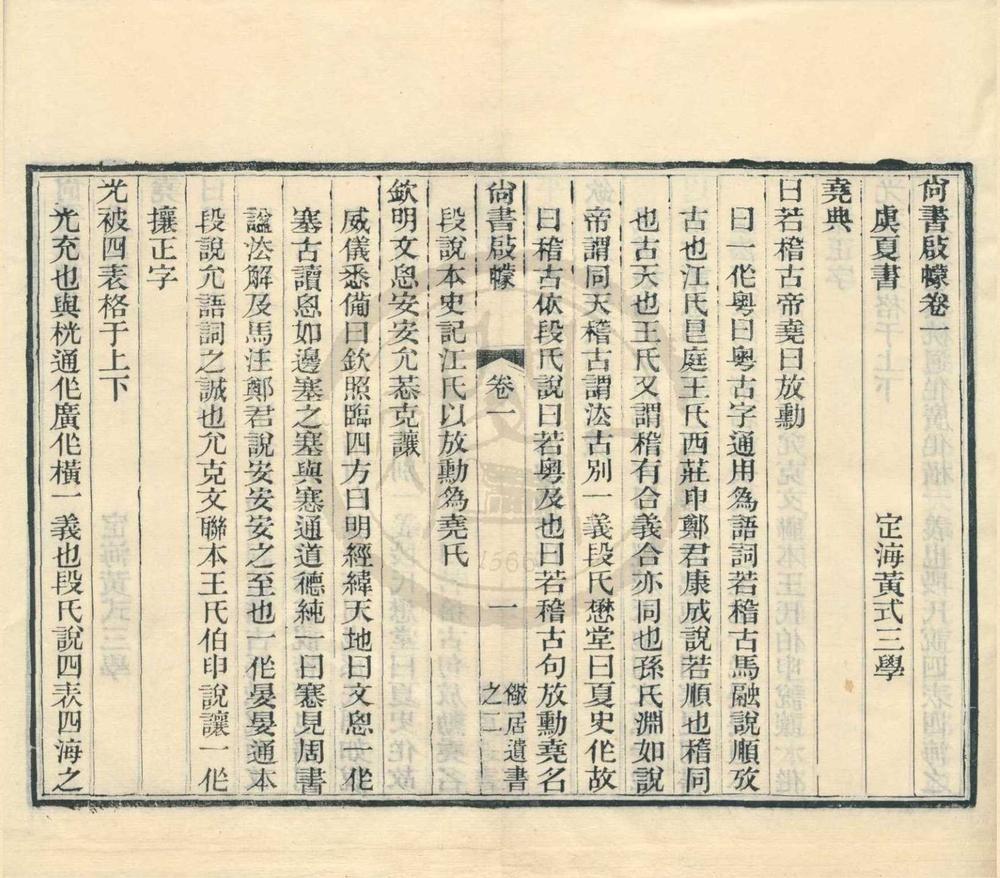 尙書啟幪卷一
虞夏書　定海黃式三學
堯典
曰若稽古帝堯曰放勳
曰一作粵曰粵古字通用為語詞若稽古馬融說順攷
古也江氏㠯庭王氏西莊申鄭君康成說若順也稽同
也古天也王氏又謂稽有合義合亦同也孫氏淵如說
帝謂同天稽古謂法古別一義段氏懋堂曰夏史作故
曰稽古依段氏說曰若粵及也曰若稽古句放勳堯名
尙書啟幪　卷一　一　儆居遺書之二
段說本史記江氏以放勳為堯氏
欽明文思安安允恭克讓
威儀悉備曰欽照臨四方曰明經緯天地曰文思一作
塞古讀思如邊塞之塞與塞通道德純一曰塞見周書
謚法解及馬注鄭君說安安安之至也一作晏晏通本
段說允語詞之誠也允克文聯本王氏伯申說讓一作
攘正字
光被四表格于上下
光充也與桄通作廣作橫一義也段氏說四表四海之